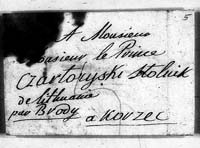 5
A Monsieur
Monsieur le Prince
Czartoryski Stolnik
de Lithuanie
par Brody
a Korzec